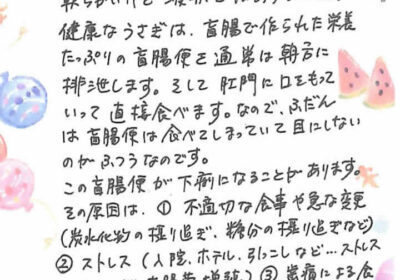 健康なうさぎは、盲腸で作られた栄養
たっぷりの盲腸便を通常は朝方に
排泄します。そして肛門に口をもって
いって直接食べます。なので、ふだん
は盲腸便は食べてしまっていて目にしない
のがふつうなのです。
この盲腸便が下痢になることがあります。
その原因は、① 不適切な食事や急な変更
(炭水化物の摂り過ぎ、糖分の摂り過ぎなど)
② ストレス (入院、ホテル、引っこしなど…ストレス
③ 歯病による食